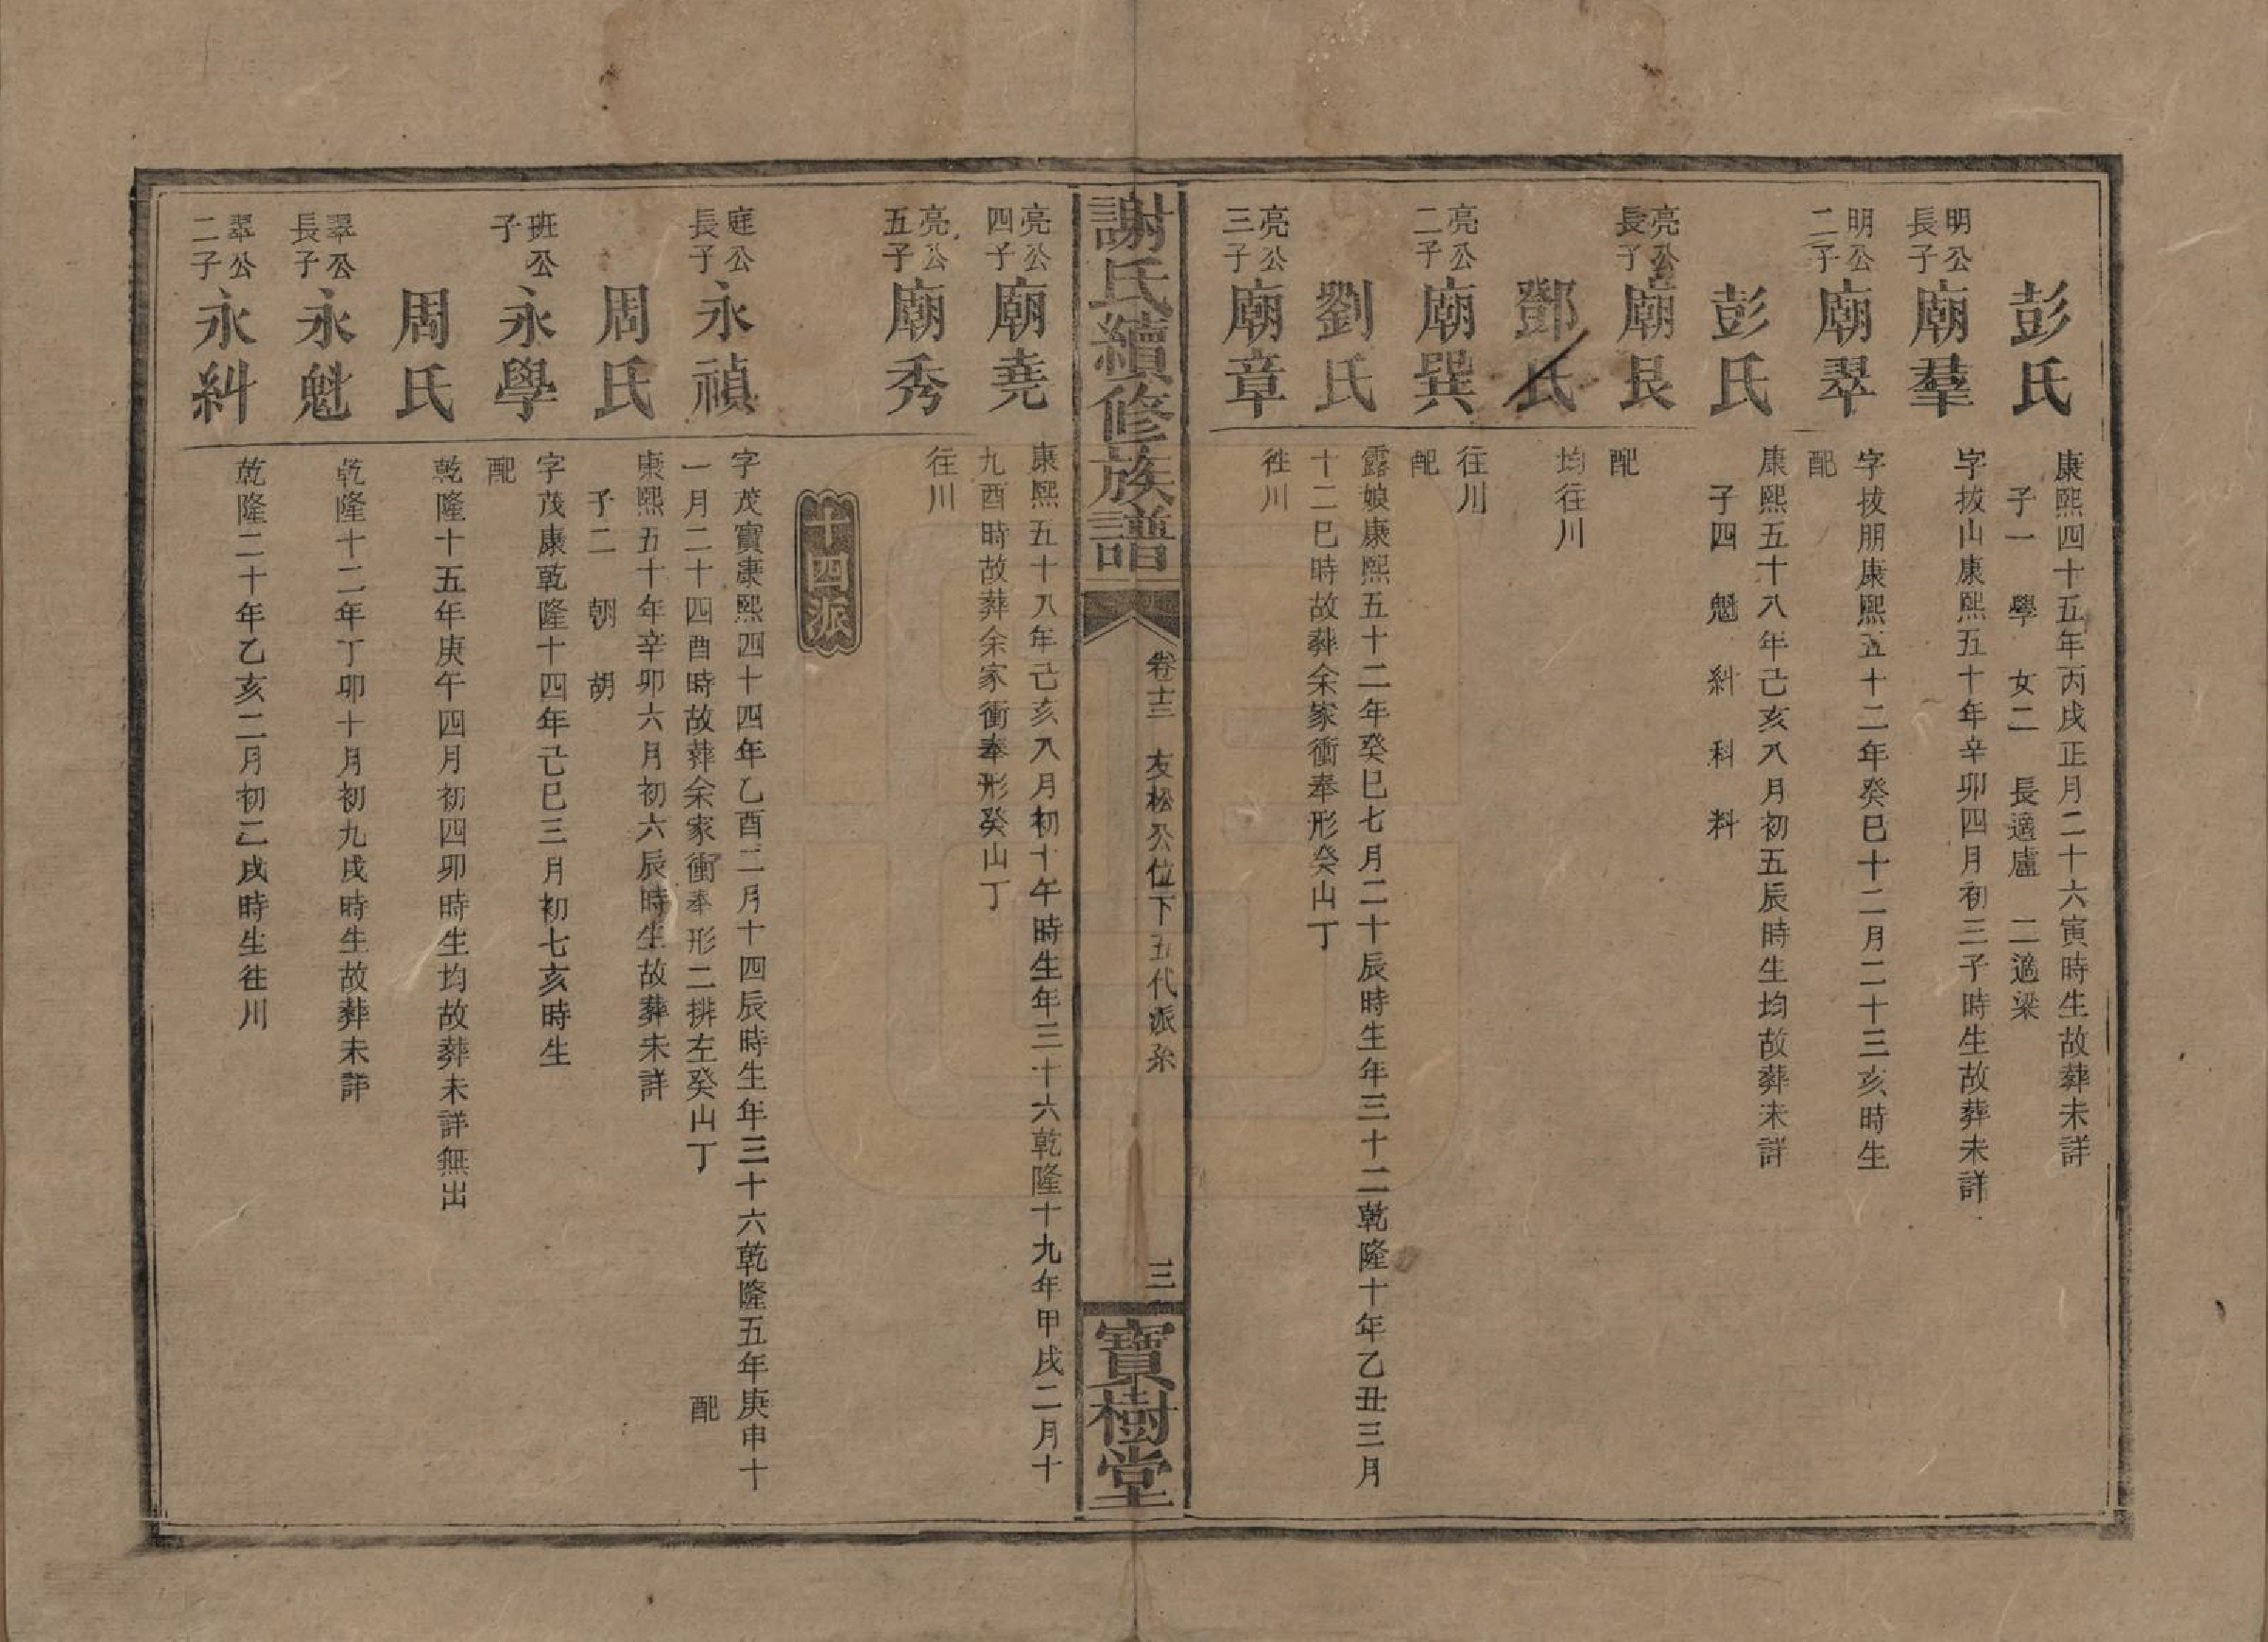 彭氏
康熙四十五年丙戌正月二十六寅時生故葬未詳
子一 學 女二 長適盧 二適梁
明公
長子
廟羣
字拔山康熙五十年辛卯四月初三子時生故葬未詳
明公
二子
廟翠
字拔朋康熙五十二年癸巳十二月二十三亥時生
配
彭氏
康熙五十八年己亥八月初五辰時生均故葬未詳
子四 魁 糾 科 料
亮公
長子
廟艮
配
鄧氏
均往川
亮公
二子
廟巽
往川
配
劉氏
露娘康熙五十二年癸巳七月二十辰時生年三十二乾隆十年乙丑三月
十二巳時故葬余家衝奉形癸山丁
亮公
三子
廟章
往川
謝氏續修族譜
卷十三 友松公位下五代派系
三
寶樹堂
亮公
四子
廟堯
康熙五十八年己亥八月初十午時生年三十六乾隆十九年甲戌二月十
九酉時故葬余家衝奉形癸山丁
亮公
五子
廟秀
往川
十四派
庭公
長子
永禎
字茂實康熙四十四年乙酉二月十四辰時生年三十六乾隆五年庚申十
一月二十四酉時故葬余家衝奉形二排左癸山丁 配
周氏
康熙五十年辛卯六月初六辰時生故葬未詳
子二 朝 胡
班公
子
永學
字茂康乾隆十四年己巳三月初七亥時生
配
周氏
乾隆十五年庚午四月初四卯時生均故葬未詳無出
翠公
長子
永魁
乾隆十二年丁卯十月初九戌時生故葬未詳
翠公
二子
永糾
乾隆二十年乙亥二月初二戌時生往川